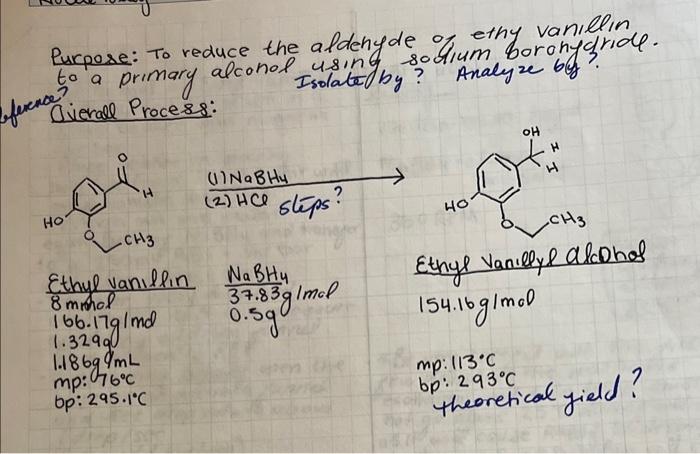 Purpose: To reduce the aldehyde of ethy vanillin
to a primary alconol using sodium borohydride.
Isolated by? Analyze by?
eference?
Overall Process:
O
H
HO
O
CH3
(1) NaBH4
(2) HCl steps?
OH
H
H
HO
O
CH3
Ethyl vanillin
8 mmol
166.17g/mol
1.329g
1.186g/mL
mp: 76°C
bp: 295.1°C
NaBH4
37.83g/mol
0.5g
Ethyl Vanillyl alcohol
154.16g/mol
mp: 113°C
bp: 293°C
theoretical yield?